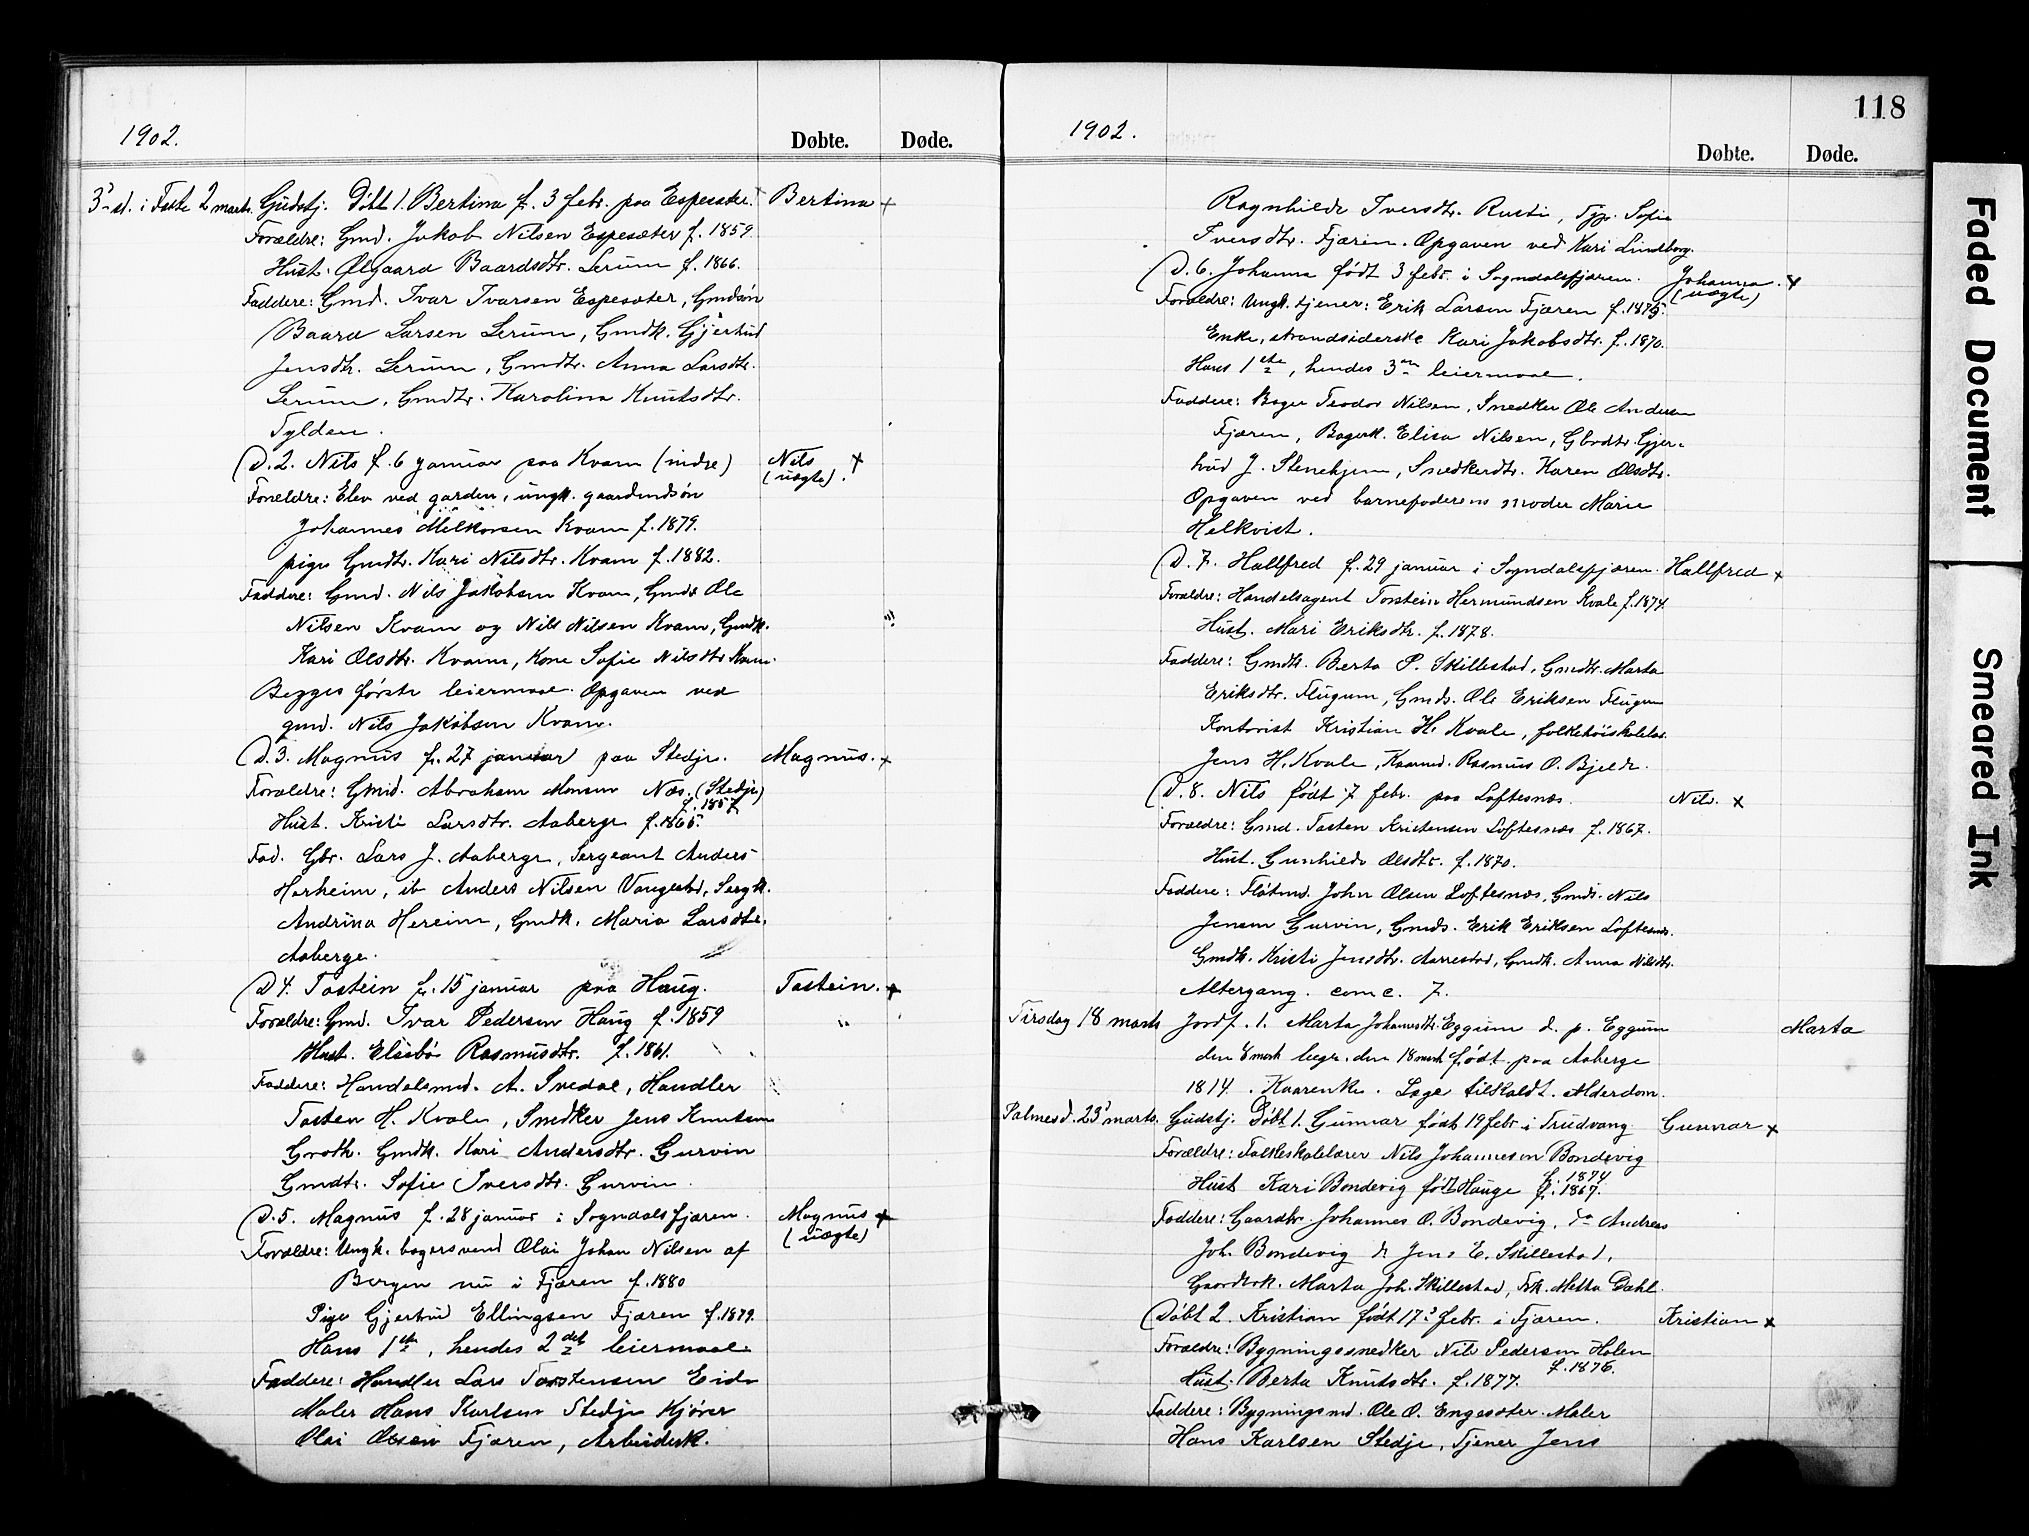 1902.
Døbte. Døde.
3die s. i Faste 2 marts. Gudstj. Döbt 1. Bertina f. 3 febr. paa Espesæter. Bertina
Forældre: Gmd. Jakob Nilsen Espesæter f. 1859
Hust. Ølgaard Baardsdtr. Lerum f. 1866.
Faddere: Gmd. Ivar Ivarsen Espesæter, Gmdsön
Baard Larsen Lerum, Gmdk. Gjertrud
Jensdtr. Lerum, Gmdtr. Anna Larsdtr.
Lerum, Gmdtr. Karolina Knutsdtr.
Tylden.
D. 2. Nils f. 6 januar paa Kvam (indre) Nils
(uægte).
Forældre: Elev ved garden, ungk. gaardmdsön
Johannes Melkorsen Kvam f. 1879.
pige Gmdtr. Kari Nilsdtr. Kvam f. 1882.
Faddere: Gmd. Nils Jakobsen Kvam, Gmds Ole
Nilsen Kvam og Nils Nilsen Kvam, Gmdk.
Kari Olsdtr. Kvam, Kone Sofie Nilsdtr Kvam.
Begges förste leiermaal. Opgaven ved
gmd. Nils Jakobsen Kvam.
D. 3. Magnus f. 27 januar paa Stedje. Magnus.
Forældre: Gmd. Abraham Monsen Næs. (Stedje)
f. 1857
Hust. Kristi Larsdtr. Aaberge f. 1865.
Fad. Gbr. Lars J. Aaberge, Sergeant Anders
Herheim, Anders Nilsen Vangestad, Sergk.
Andrina Hereim, Gmdk. Maria Larsdtr.
Aaberge.
D 4. Tostein f. 15 januar paa Haug. Tostein.
Forældre: Gmd. Ivar Pedersen Haug f. 1859
Hust. Elsebö Rasmusdtr. f. 1861.
Faddere: Handelsmd. A. Svedal, Handler
Tosten H. Kvale, Snedker Jens Knutsen
Groth. Gmdk. Kari Andersdtr. Gurvin
Gmdtr. Sofie Iversdtr. Gurvin.
D. 5. Magnus f. 28 januar i Sogndalsfjæren. Magnus
(uægte)
Forældre: Ungk. bagersvend Olai Johan Nilsen af
Bergen nu i Fjæren f. 1880
Pige Gjertrud Ellingsen Fjæren f. 1879.
Hans 1ste, hendes 2det leiermaal.
Faddere: Handler Lars Torstensen Eide
Maler Hans Karlsen Stedje Kjörer
Olai Olsen Fjæren, Arbeidsk.
118
1902.
Døbte. Døde.
Ragnhilde Iversdtr. Rusti, Tjp. Sofie
Iversdtr. Fjæren. Opgaven ved Kari Lindborg.
D. 6. Johanna födt 3 febr. i Sogndalsfjæren. Johanna.
(uægte)
Forældre: Ungk. tjener: Erik Larsen Fjæren f. 1875.
Enke, strandsiderske Kari Jakobsdtr. f. 1870.
Hans 1ste, hendes 3die leiermaal.
Faddere: Bager Teodor Nilsen, Snedker Ole Andersen
Fjæren, Bagerk. Elisa Nilsen, Gbrdtr. Gjer-
trud J. Stenehjem, Snedkerdtr. Karen Olsdtr.
Opgaven ved barnefaderens moder Marie
Helkvist.
D. 7. Hallfred f. 29 januar i Sogndalsfjæren. Hallfred
Forældre: Handelsagent Torstein Hermundsen Kvale f. 1874.
Hust. Mari Eriksdtr. f. 1878.
Faddere: Gmdtr. Berta P. Skillestad, Gmdtr. Marta
Eriksdtr. Flugum, Gmds. Ole Eriksen Flugum
Kontorist Kristian H. Kvale, folkehöiskolelær.
Jens H. Kvale, Kaarmd. Rasmus O. Bjelde.
D. 8. Nils födt 7 febr. paa Loftesnæs. Nils.
Forældre: Gmd. Tosten Kristensen Loftesnæs f. 1867.
Hust. Gunhilde Olsdtr. f. 1870.
Faddere: Flötmd. John Olsen Loftesnæs, Gmds. Nils
Jensen Gurvin, Gmds. Erik Eriksen Loftesnæs.
Gmdk. Kristi Jensdtr. Aarrestad, Gmdk. Anna Nilsdtr.
Altergang. comc. 7.
Tirsdag 18 marts Jordf. 1. Marta Johannesdtr. Eggum d. p. Eggum Marta
den 8 marts begr. den 18 marts födt paa Aaberge
1814. Kaarenke. Læge tilkaldt. Alderdom.
Palmesd. 23de marts. Gudstj. Döbt 1. Gunnar födt 19 febr i Trudvang Gunnar
Forældre: Folkeskolelærer Nils Johannesen Bondevig
f. 1874
Hust Kari Bondevig födt Hauge f. 1867.
Faddere: Gaardbr. Johannes O. Bondevig, do Andreas
Joh. Bondevig & Jens E. Skillestad,
Gaardbrk. Marta Joh. Skillestad, Frk. Metta Dahl.
Döbt 2. Kristian födt 17de febr. i Fjæren. Kristian
Forældre: Bygningssnedker Nils Pedersen Holen
f. 1876.
Hust. Berta Knutsdtr. f. 1877.
Faddere: Bygningsmd. Ole O. Engesæter. Maler
Hans Karlsen Stedje, Tjener Jens
Faded Document
Smeared Ink